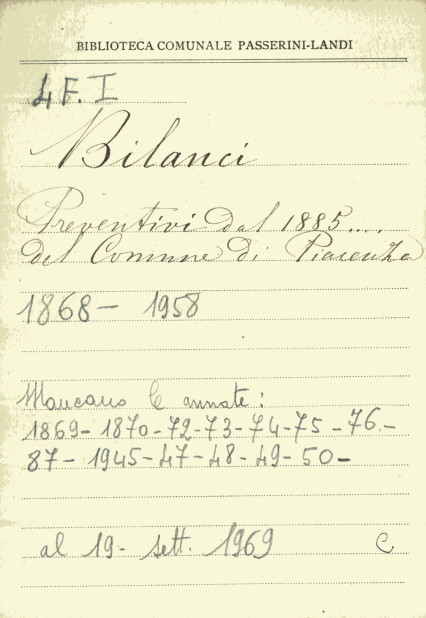 BIBLIOTECA COMUNALE PASSERINI-LANDI
4 F. I
Bilanci
Preventivi dal 1885....
del Comune di Piacenza
1868 - 1958
Mancano le annate:
1869 - 1870 - 72 - 73 - 74 - 75 - 76. -
87 - 1945 - 47 - 48 - 49 - 50 -
al 19 - sett. 1969 C